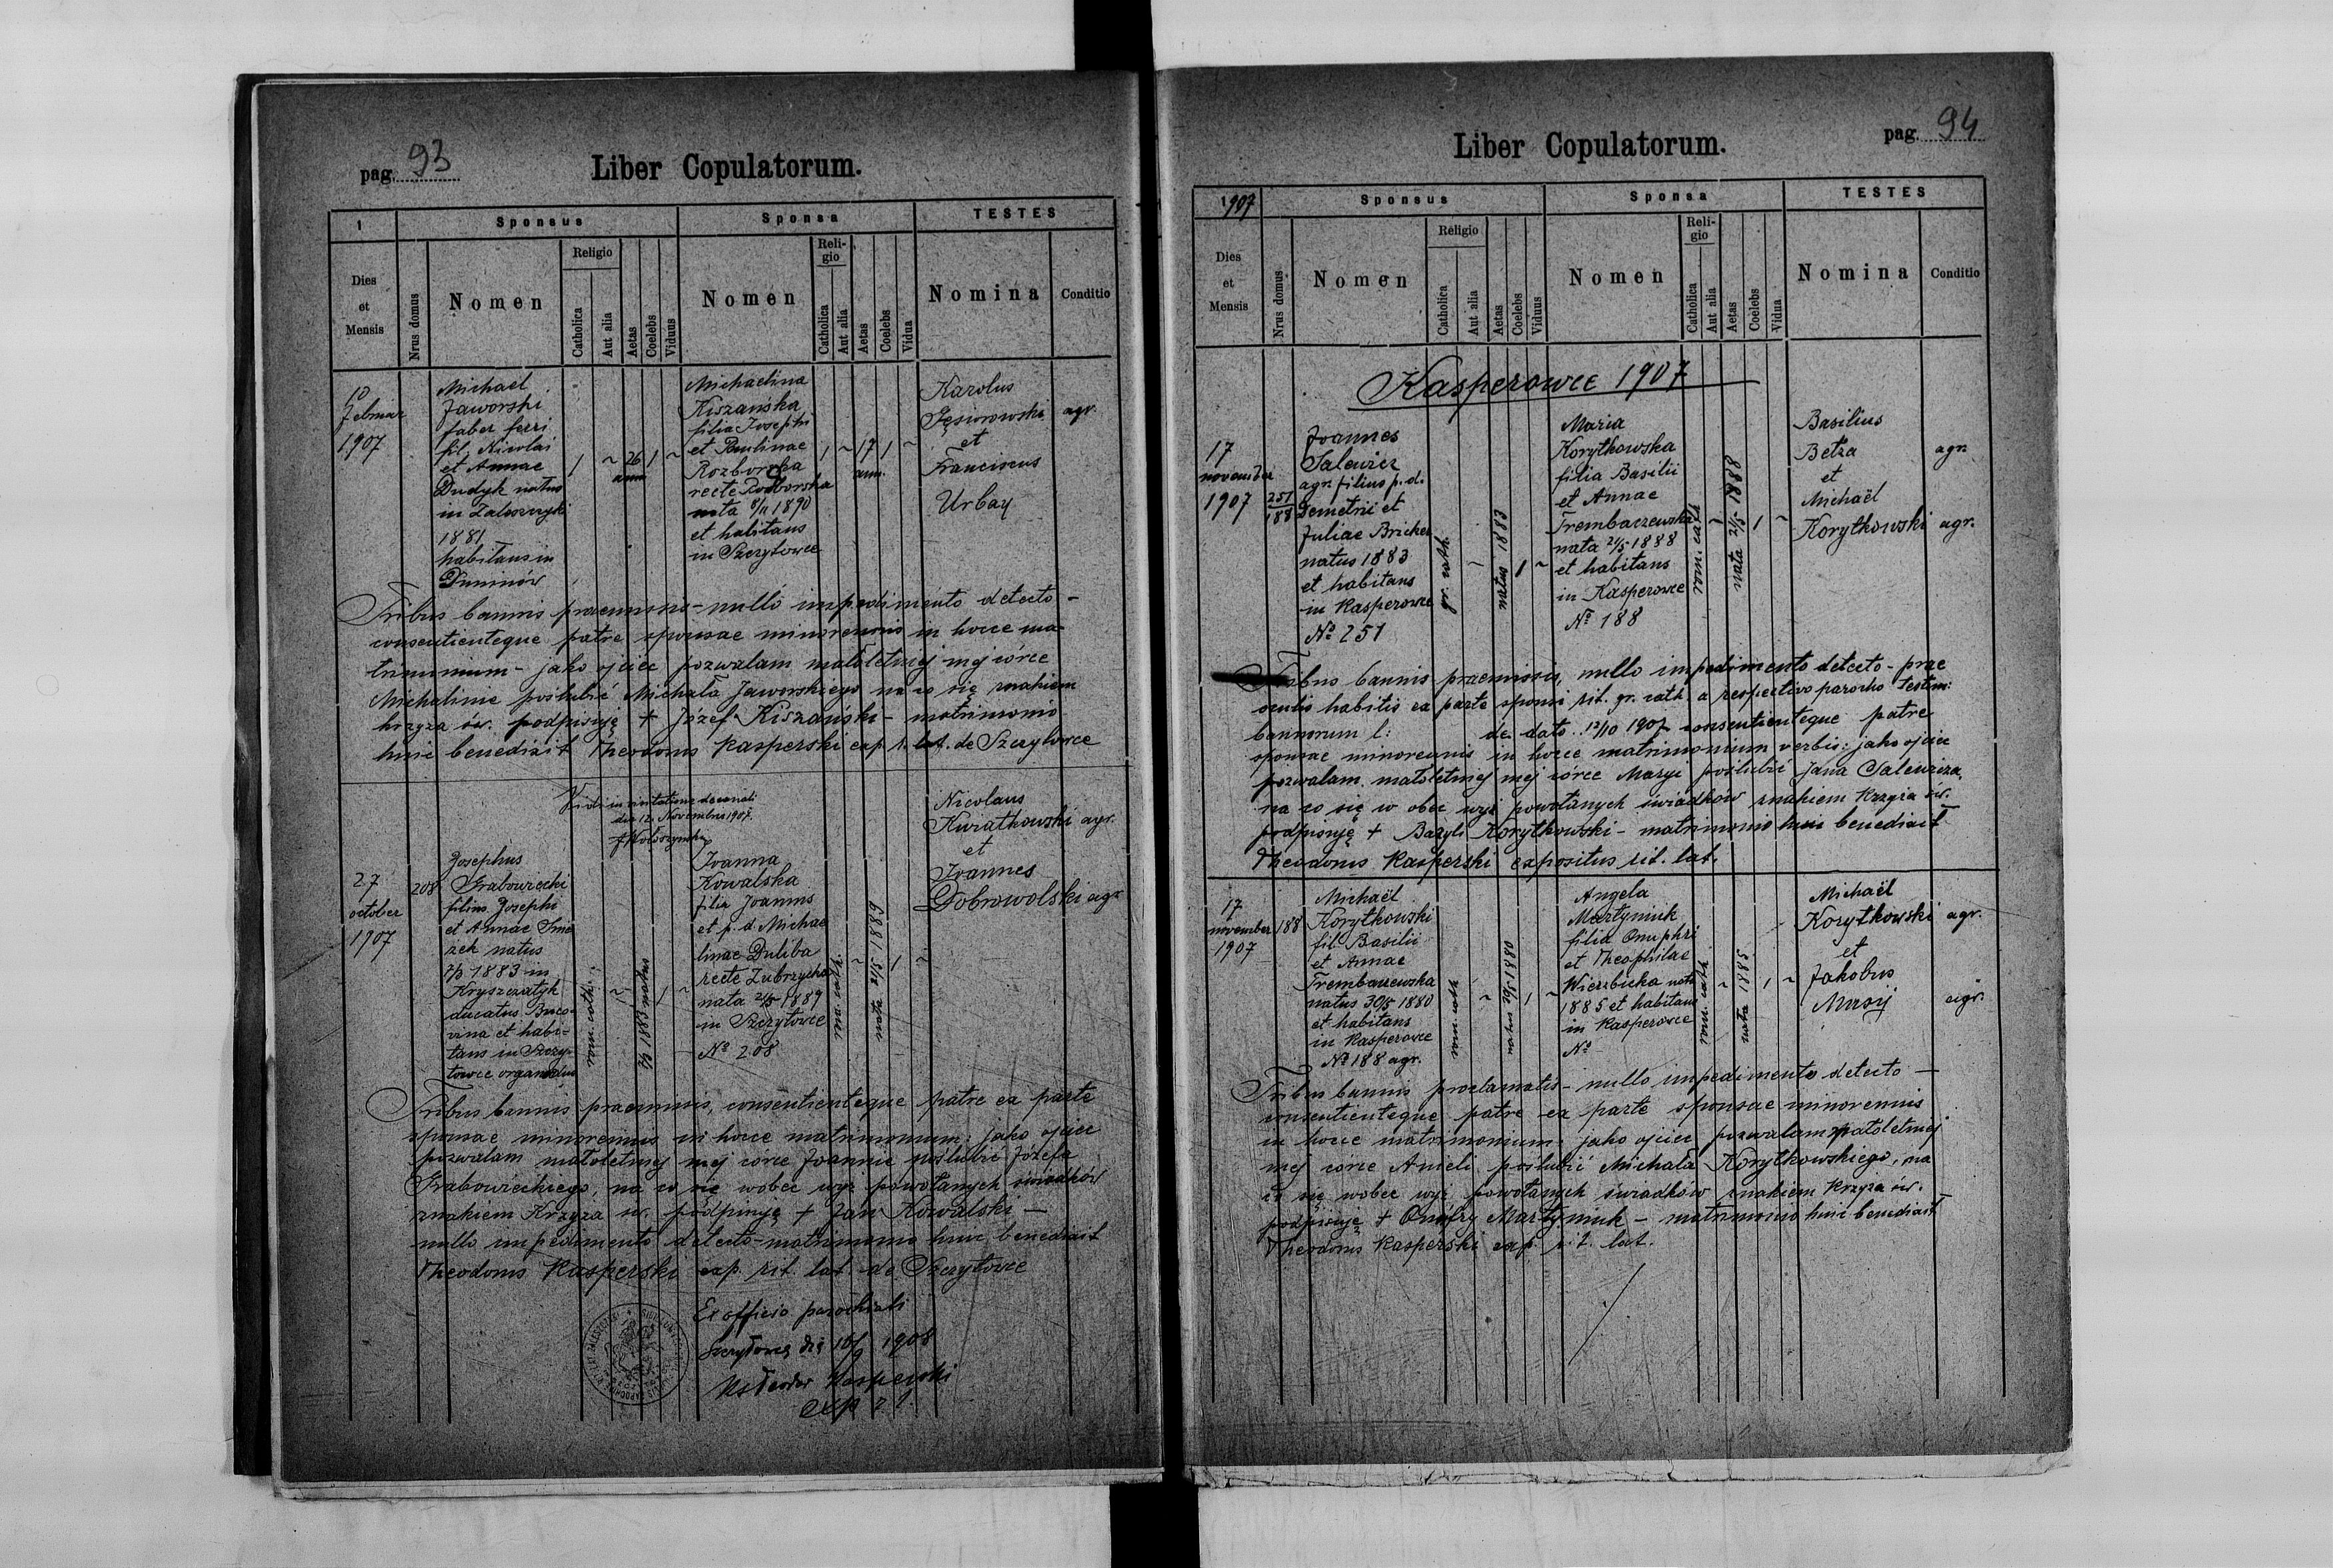 pag. 93
Liber Copulatorum.
1
Sponsus
Sponsa
TESTES
Dies et Mensis
Nrus domus
Nomen
Religio
Catholica
Aut alia
Aetas
Coelebs
Viduus
Nomen
Religio
Catholica
Aut alia
Aetas
Coelebs
Vidua
Nomina
Conditio
10
Februar
1907
Michael
Jaworski
faber ferri
fil. Nicolai
et Annae
Dudyk natus
in Zaleszczyki
1881
habitans in
Duninów
1
~
26
ann.
1
~
Michaelina
Kiszańska
filia Josephi
et Paulinae
Rozborska
recte Rodborska
nata 8/11 1890
et habitans
in Szczytowce
1
~
17
ann.
1
~
Karolus
Gęsiorowski agr.
et
Franciscus
Urbay
Tribus bannis praemissis - nullo impedimento detecto -
consentienteque patre sponsae minorennis in hocce ma-
trimonium - jako ojciec pozwalam małoletniej mej córce
Michalinie poślubić Michała Jaworskiego na co się znakiem
krzyża św. podpisuję + Józef Kiszański - matrimonio
huic benedixit Theodorus Kasperski exp. r. lat. de Szczytowce
Vidi in visitatione decanali
die 12 Novembris 1907.
27
october
1907
208
Josephus
Grabowiecki
filius Josephi
et Annae Sme
rek natus
1883 in
Kryszczatyk
ducatus Buco-
vina et habi-
tans in Szczy-
towce organodus
rom. cath.
~
1883 natus
1
~
Joanna
Kowalska
filia Joannis
et p. d. Michae
linae Duliba
recte Zubrzycka
nata 2/5 1889
in Szczytowce
№ 208
rom. cath.
~
nata 2/5 1889
1
~
Nicolaus
Kwiatkowski agr.
et
Joannes
Dobrowolski agr.
Tribus bannis praemissis, consentienteque patre ex parte
sponsae minorennis in hocce matrimonium: jako ojciec
pozwalam małoletniej mej córce Joannie poślubić Józefa
Grabowieckiego, na co się wobec wyż powołanych świadków
znakiem Krzyża św. podpisuję + Jan Kowalski -
nullo impedimento detecto - matrimonio huic benedixit
Theodorus Kasperski exp. rit. lat. de Szczytowce
Ex officio parochiali
Szczytowce die 10/9 1908
Ks Teodor Kasperski
exp r. l.
pag. 94
Liber Copulatorum.
1907
Sponsus
Sponsa
TESTES
Dies et Mensis
Nrus domus
Nomen
Religio
Catholica
Aut alia
Aetas
Coelebs
Viduus
Nomen
Religio
Catholica
Aut alia
Aetas
Coelebs
Vidua
Nomina
Conditio
Kasperowce 1907
17
november
1907
251
188
Joannes
Salewicz
agr. filius p. d.
Demetrii et
Juliae Bricker
natus 1883
et habitans
in Kasperowce
№ 251
gr. cath.
~
natus 1883
1
~
Maria
Korytkowska
filia Basilii
et Annae
Trembaczewska
nata 21/5 1888
et habitans
in Kasperowce
№ 188
rom. cath.
~
nata 21/5 1888
1
~
Basilius
Betza agr.
et
Michaël
Korytkowski agr.
Tribus bannis praemissis, nullo impedimento detecto - prae
bannorum l: de dato 12/10 1907 consentienteque patre
sponsae minorennis in hocce matrimonium verbis: jako ojciec
pozwalam małoletniej mej córce Maryi poślubić Jana Salewicza,
na co się w obec wyż powołanych świadków znakiem Krzyża św.
podpisuję + Bazyli Korytkowski - matrimonio huic benedixit
Theodorus Kasperski expositus rit. lat.
17
november
1907
188
Michaël
Korytkowski
fil Basilii
et Annae
Trembaczewska
natus 30/8 1880
et habitans
in Kasperowce
№ 188 agr.
rom. cath.
~
natus 30/8 1880
1
~
Angela
Martyniuk
filia Onuphri
et Theophilae
Wierzbicka nata
1885 et habitans
in Kasperowce
№
rom. cath.
~
nata 1885
1
~
Michaël
Korytkowski agr.
et
Jakobus
Mrozij agr.
Tribus bannis proclamatis - nullo impedimento detecto -
consentienteque patre ex parte sponsae minorennis
in hocce matrimonium: jako ojciec pozwalam małoletniej
mej córce Anieli poślubić Michała Korytkowskiego, na
co się wobec wyż powołanych świadków znakiem Krzyża św.
podpisuję + Onufry Martyniuk - matrimonio huic benedixit
Theodorus Kasperski exp. rit. lat.